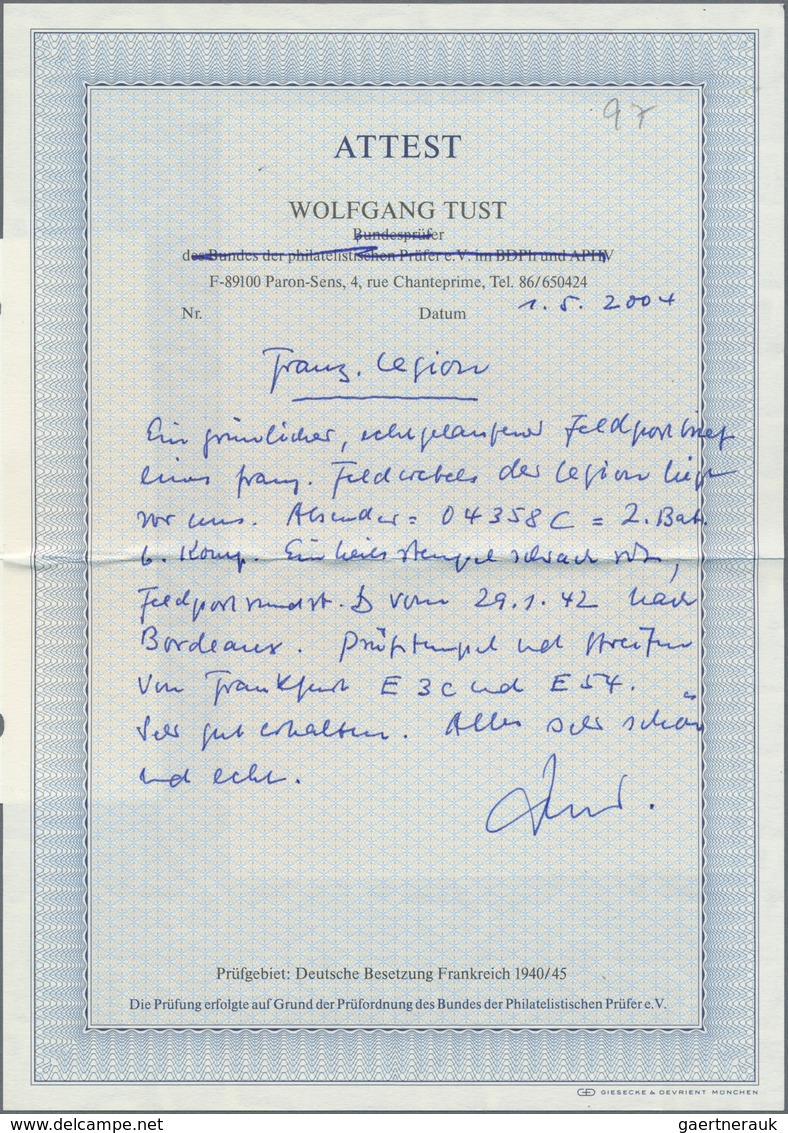 97
ATTEST
WOLFGANG TUST
Bundesprüfer
des Bundes der philatelistischen Prüfer e.V. im BDPh und APHV
F-89100 Paron-Sens, 4, rue Chanteprime, Tel. 86/650424
Nr. Datum 1.5.2004
Franz. Legion
Ein gründlicher, echt gelaufener Feldpostbrief
eines franz. Feldwebels der Legion liegt
vor uns. Absender = 04358C = 2. Bat.
6. Komp. Einheitsstempel schwach
Feldpost D vom 29.1.42 nach
Bordeaux. Prüfstempel und Streifen
von Frankfurt E 3c und E 54.
Sehr gut erhalten. Alles sehr schön
und echt.
Tust.
Prüfgebiet: Deutsche Besetzung Frankreich 1940/45
Die Prüfung erfolgte auf Grund der Prüfordnung des Bundes der Philatelistischen Prüfer e.V.
GIESECKE & DEVRIENT MÜNCHEN
delcampe.net
gaertnerauk